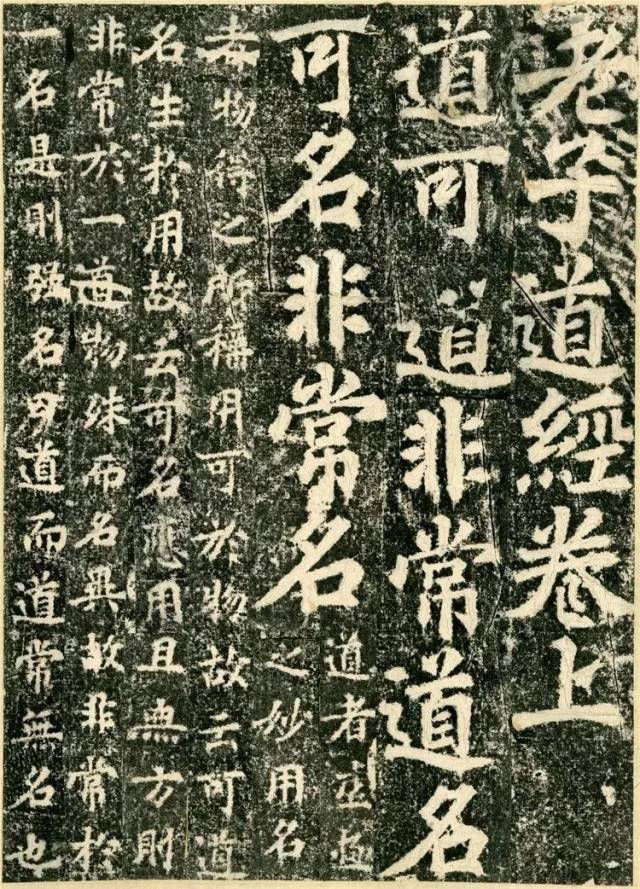 老子道經卷上
道可道非常道名
可名非常名
道者虛極
之妙用名
者物得之所稱用可於物故云可道
名生於用故云可名應用且無方則
非常於一道物殊而名異故非常於
一名是則强名曰道而道常無名也